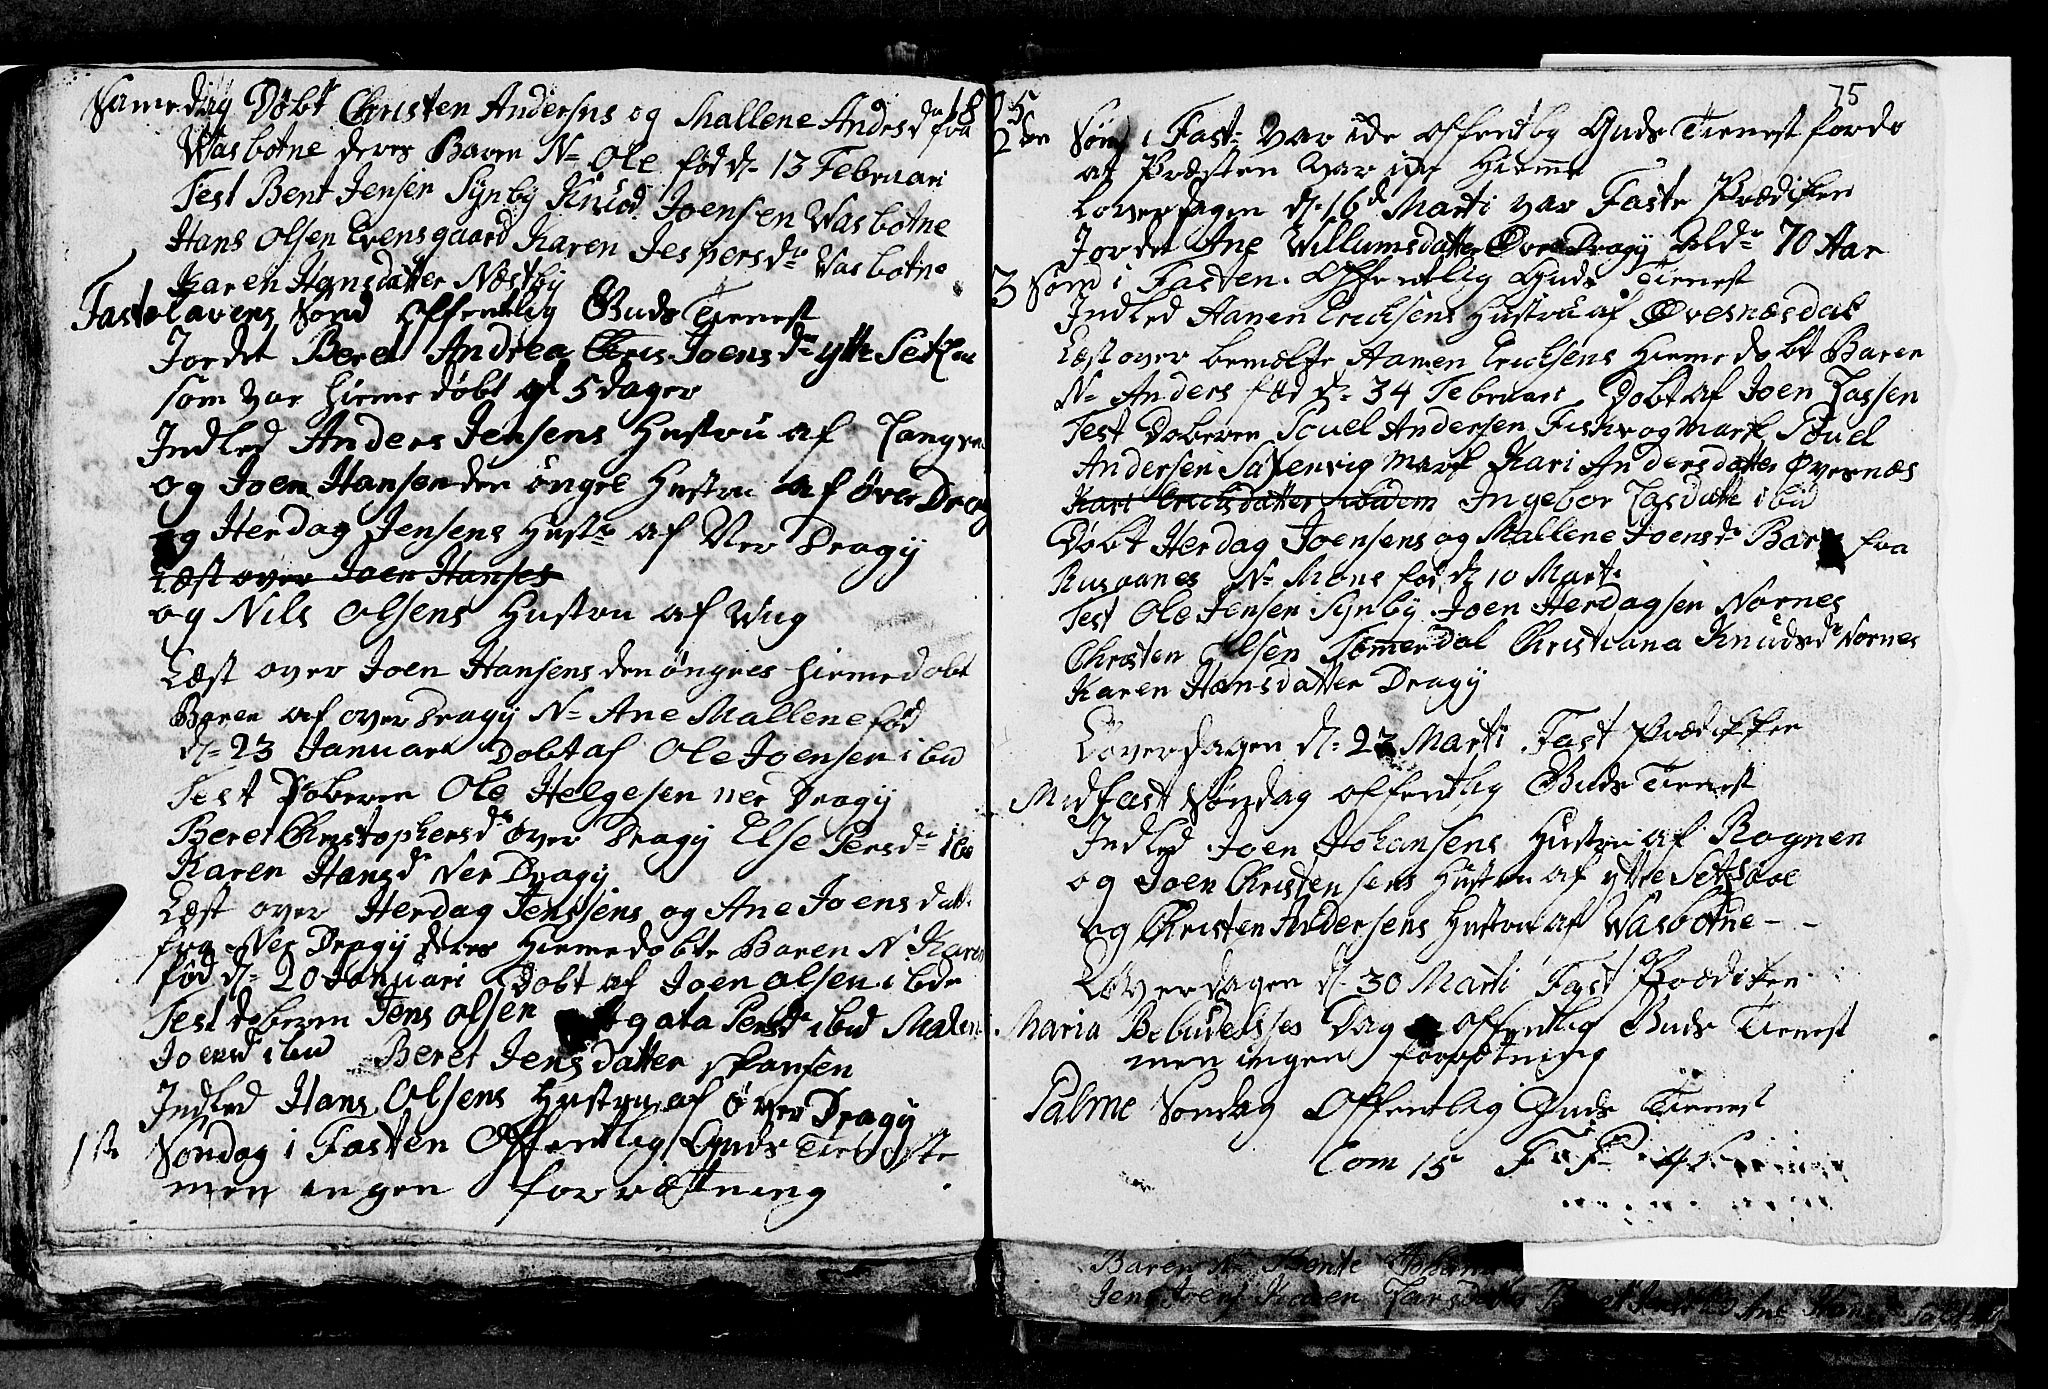 Samedag Døbt Christen Andersns og Mallene Andesd fra
Wasbotne deres Baren N- Ole fød d- 13 Februari
Test Bent Jensen Synby Knud Joensen Wasbotne
Hans Olsen Evensgaard Karen Jespersd- Wasbotne
Karen Hansdatter Næstby
Fastelavens Sønd offentlig Guds Tienest
Jordet Beret Andrea Joensd ytte Set
som var Hiemedøbt 5 dager
Indled Anders Jensens Hustru af
og Joen Hansen den öngre Hustru af över Dragy
og Herdag Jensens Hust- af Ner Dragy
Læst over Joen Hanses
og Nils Olsens Hustru af Wug
Læst over Joen Hansens den öngres hiemedobt
Baren af over Dragy N- Ane Mallene fød
d- 23 Januari Dobt af Ole Joensen ibid
Test Doberen Ole Helgesen ner Dragy
Beret Christophersd- över Dragy Else Persd- ibid
Karen Hansd Ner Dragy
Læst over Herdag Jenssens og Ane Joensdatt-
fra Ner Dragy deres Hiemedobte Baren N- Karen
fød d- 20 Januari Dobt af Joen Olsen ibde
Test doberen Jens Olsen Agata Persd ibid Malen
Joensd ibid Beret Jensdatter Skansen
Indled Hans Olsens Hustru af över Dragy
1ste Søndag i Fasten Offentlig Guds Tieneste
men ingen forrættning
75
2den Sønd i Fast- var ide offentlig Guds Tienest forde
at Præsten var iche Hieme
Loverdagen d- 16d Marti var Faste Prædiken
Jordet Ane Willumsdatter Over Dragy Old- 70 Aar
3 Sønd i Fasten Offentlig Guds Tienest
Indled Hanen Erichsens Hustru af Øvesnæsdal
Læst over bemelte Hanen Erichsens Hieme dobt Baren
N- Anders fød d- 34 Februari Dobt af Joen Lassen
Test Doberen Povel Andersen Fiskvogmark Povel
Andersen Saxenvig mark Kari Andersdatter Øvesnæs
Kari Erichsdatter ibidem Ingebor Lasdatte ibid
Døbt Herdag Joensens og Mallene Joensd- Baren fra
Rusaanes N- Mons fød d- 10 Marti
Test Ole Jensen Synby Joen Herdagsen Nornes
Christen Olsen Tømerdal Christiana Knudsd- Nornes
Karen Hansdatter Dragy
Loverdagen d- 23 Marti Fast Prædikken
Midfast Søndag offentlig Guds Tienest
Indled Joen Johansens Hustru af Rognen
og Joen Christensens Hustru af ytte Setsaae
og Christen Andersens Hustru af Wasbotne - -
Loverdagen d- 30 Marti Fast Prædiken
Maria Bebudelsses Dag offentlig Guds Tienest
men ingen forrætning
Palme Søndag Offentlig Guds Tienest
Com 15
Baren N- Bente
Jens Joens Karen Larsdatter